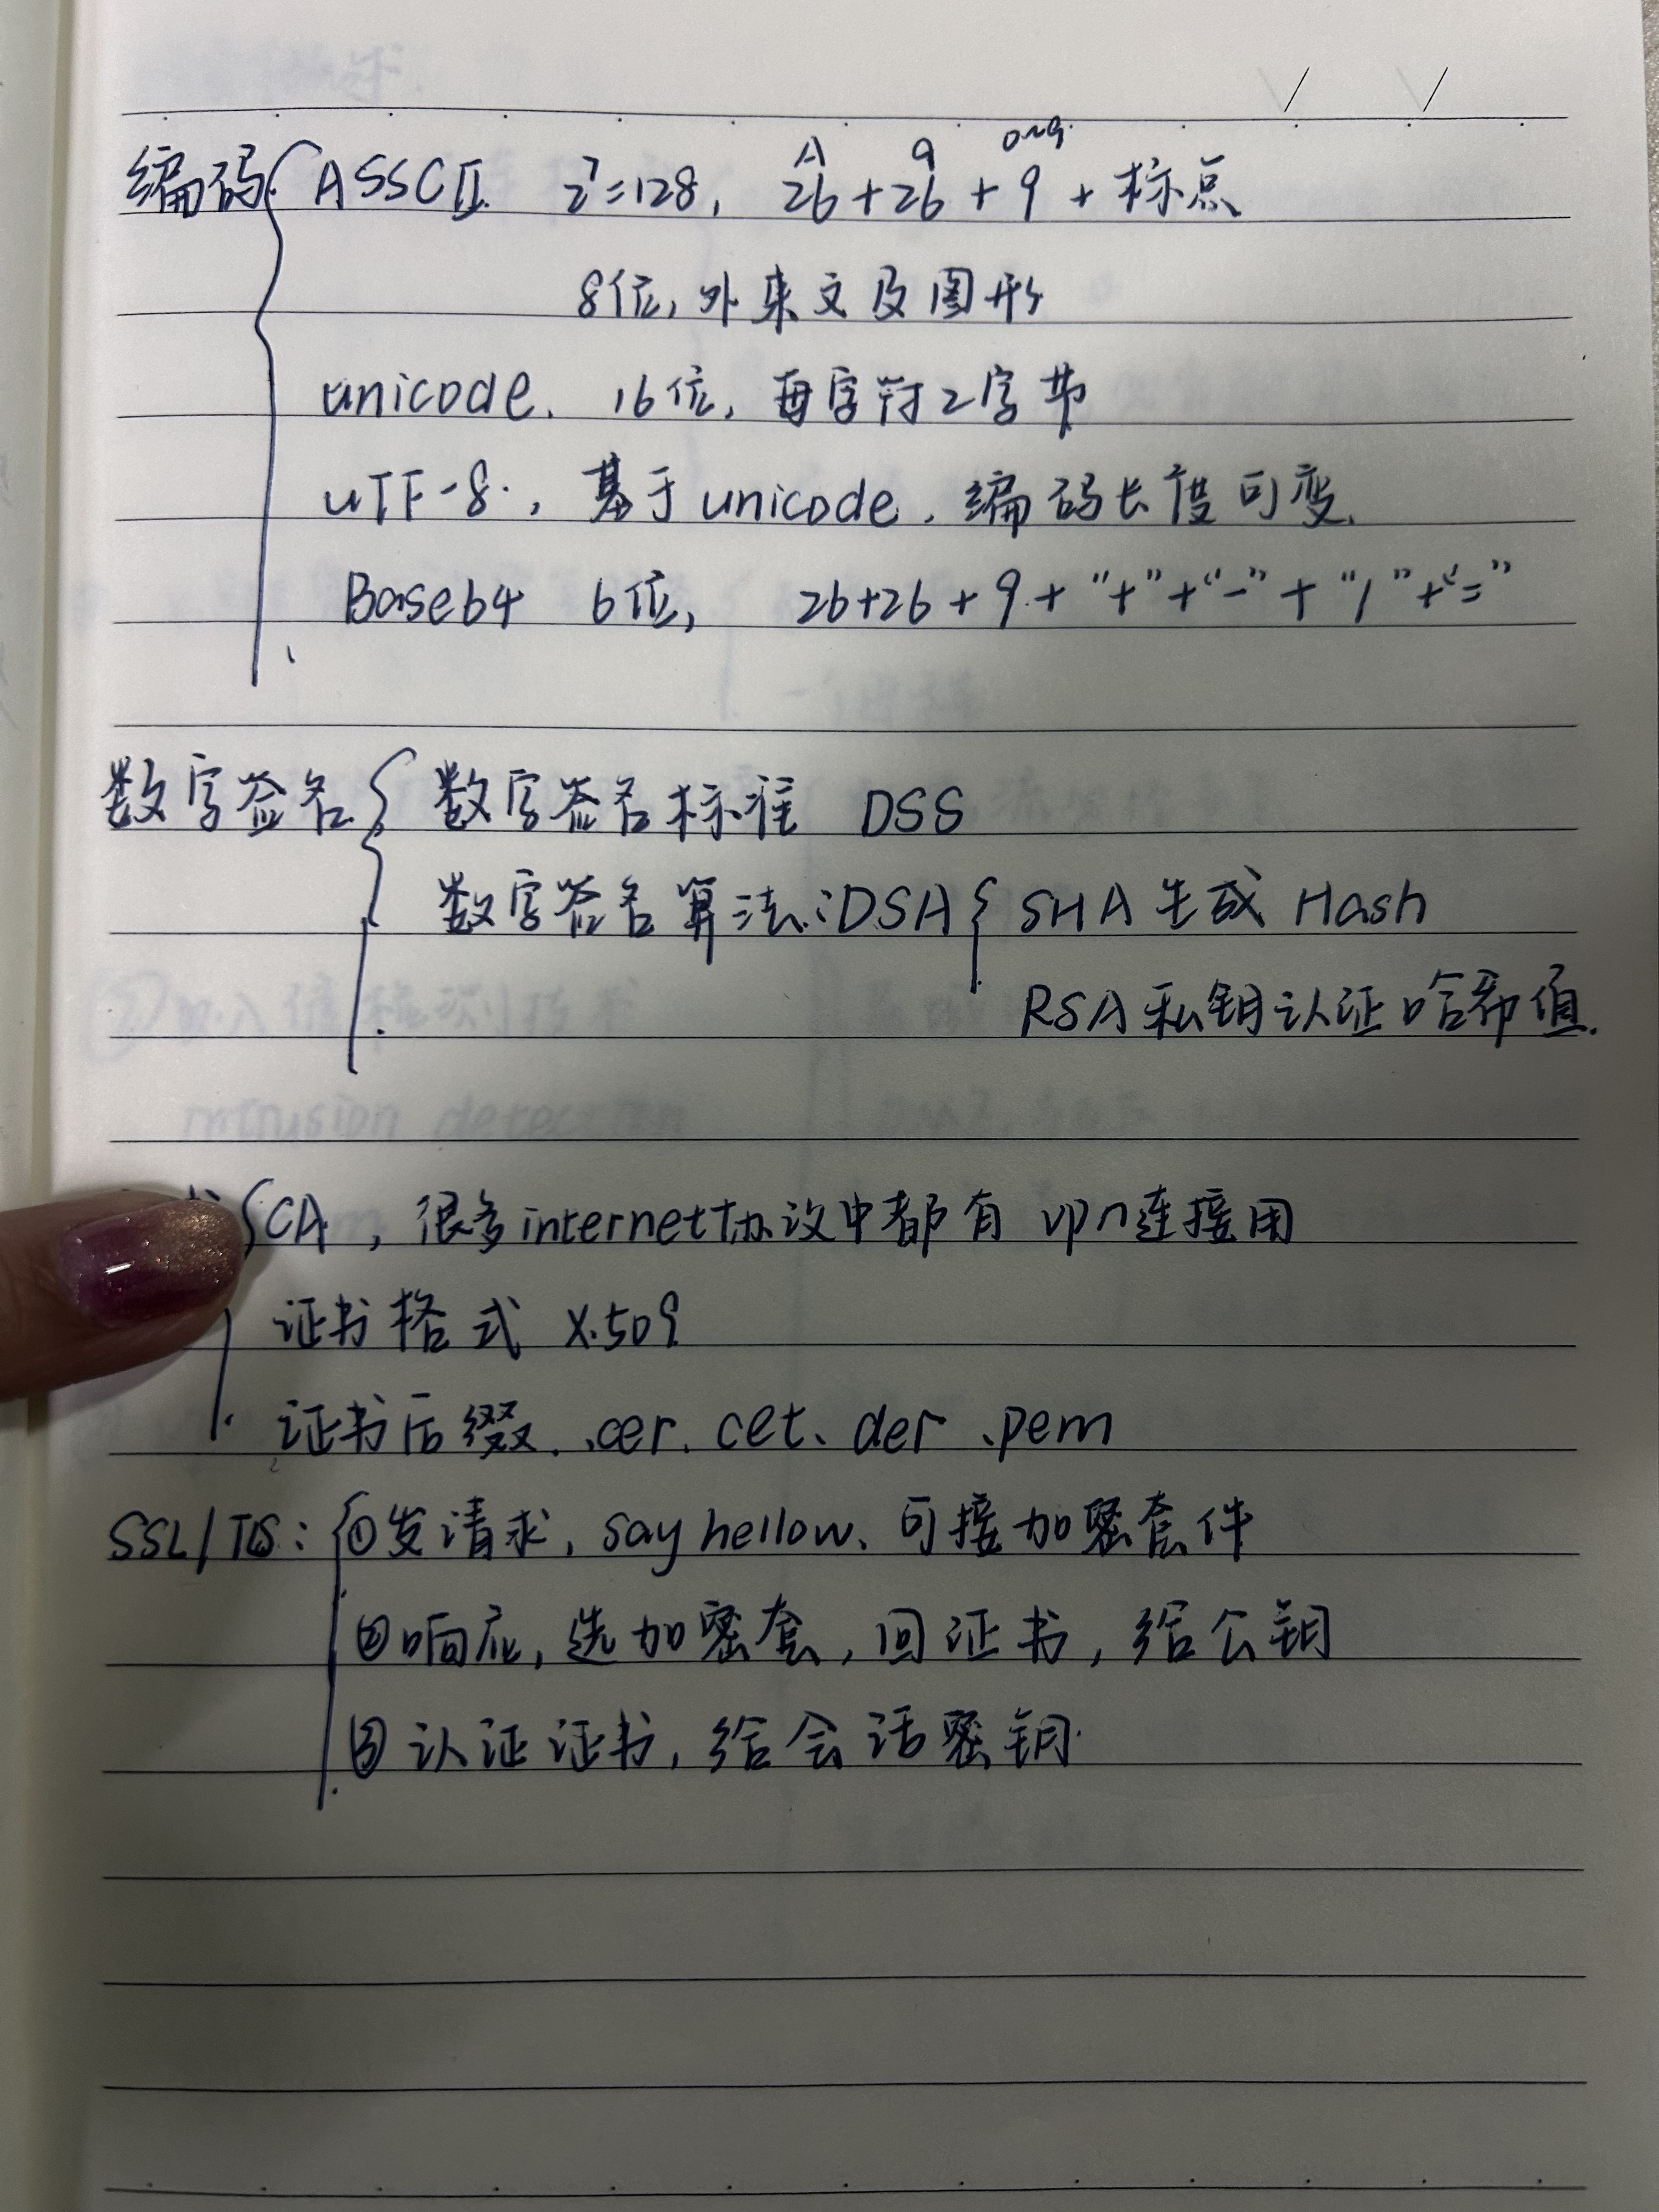 A a 0~9
编码 ASSCII 2^7=128, 26+26+9+标点
8位, 外来文及图形
unicode. 16位, 每字符2字节
UTF-8., 基于unicode. 编码长度可变.
Base64 6位, 26+26+9+"+"+"-"+"/"+"="
数字签名 数字签名标准 DSS
数字签名算法:DSA SHA 生成 Hash
RSA 私钥认证哈希值.
CA, 很多internet协议中都有 vpn连接用
证书格式 X.509
证书后缀. .cer. cet. der .pem
SSL/TLS: ①发请求, say hellow、可接加密套件
②响应, 选加密套, 回证书, 给公钥
③认证证书, 给会话密钥.